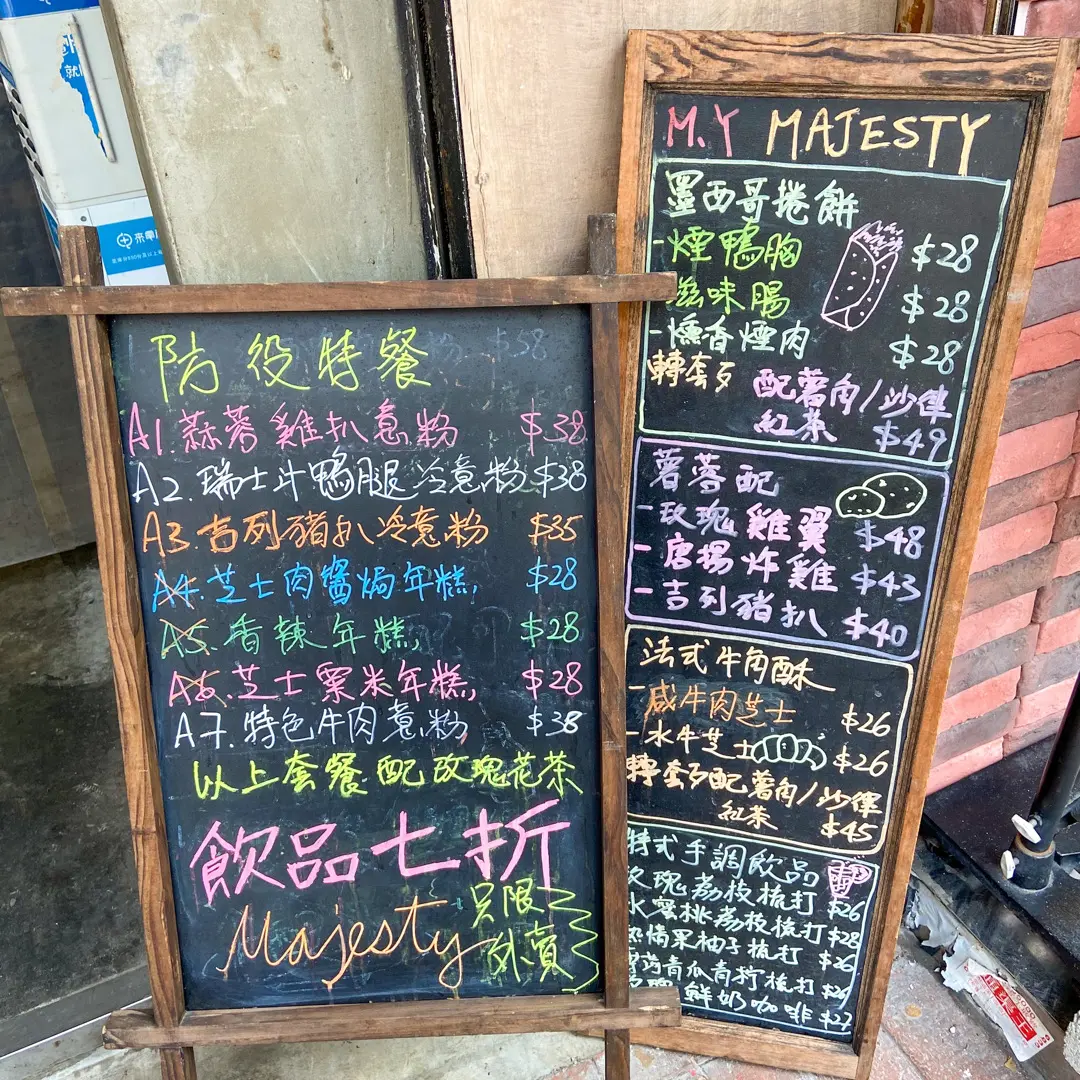 防役特餐
A1.蒜蓉雞扒意粉 $38
A2.瑞士汁鴨腿冷意粉 $38
A3.吉列豬扒冷意粉 $35
A4.芝士肉醬焗年糕 $28
A5.香辣年糕 $28
A6.芝士粟米年糕 $28
A7.特色牛肉意粉 $38
以上套餐配玫瑰花茶
飲品七折
Majesty
只限
外賣
M.Y MAJESTY
墨西哥捲餅
-煙鴨胸 $28
滋味腸 $28
-燻香煙肉 $28
轉套多 配薯角/沙律
紅茶 $49
薯蓉配
-玫瑰雞翼 $48
-唐揚炸雞 $43
-吉列豬扒 $40
法式牛角酥
-咸牛肉芝士 $26
-水牛芝士 $26
轉套多配薯角/沙律
紅茶 $45
特式手調飲品
玫瑰荔枝梳打 $26
水蜜桃荔枝梳打 $28
熱情果柚子梳打 $26
青瓜青柠梳打
鮮奶咖啡 $27